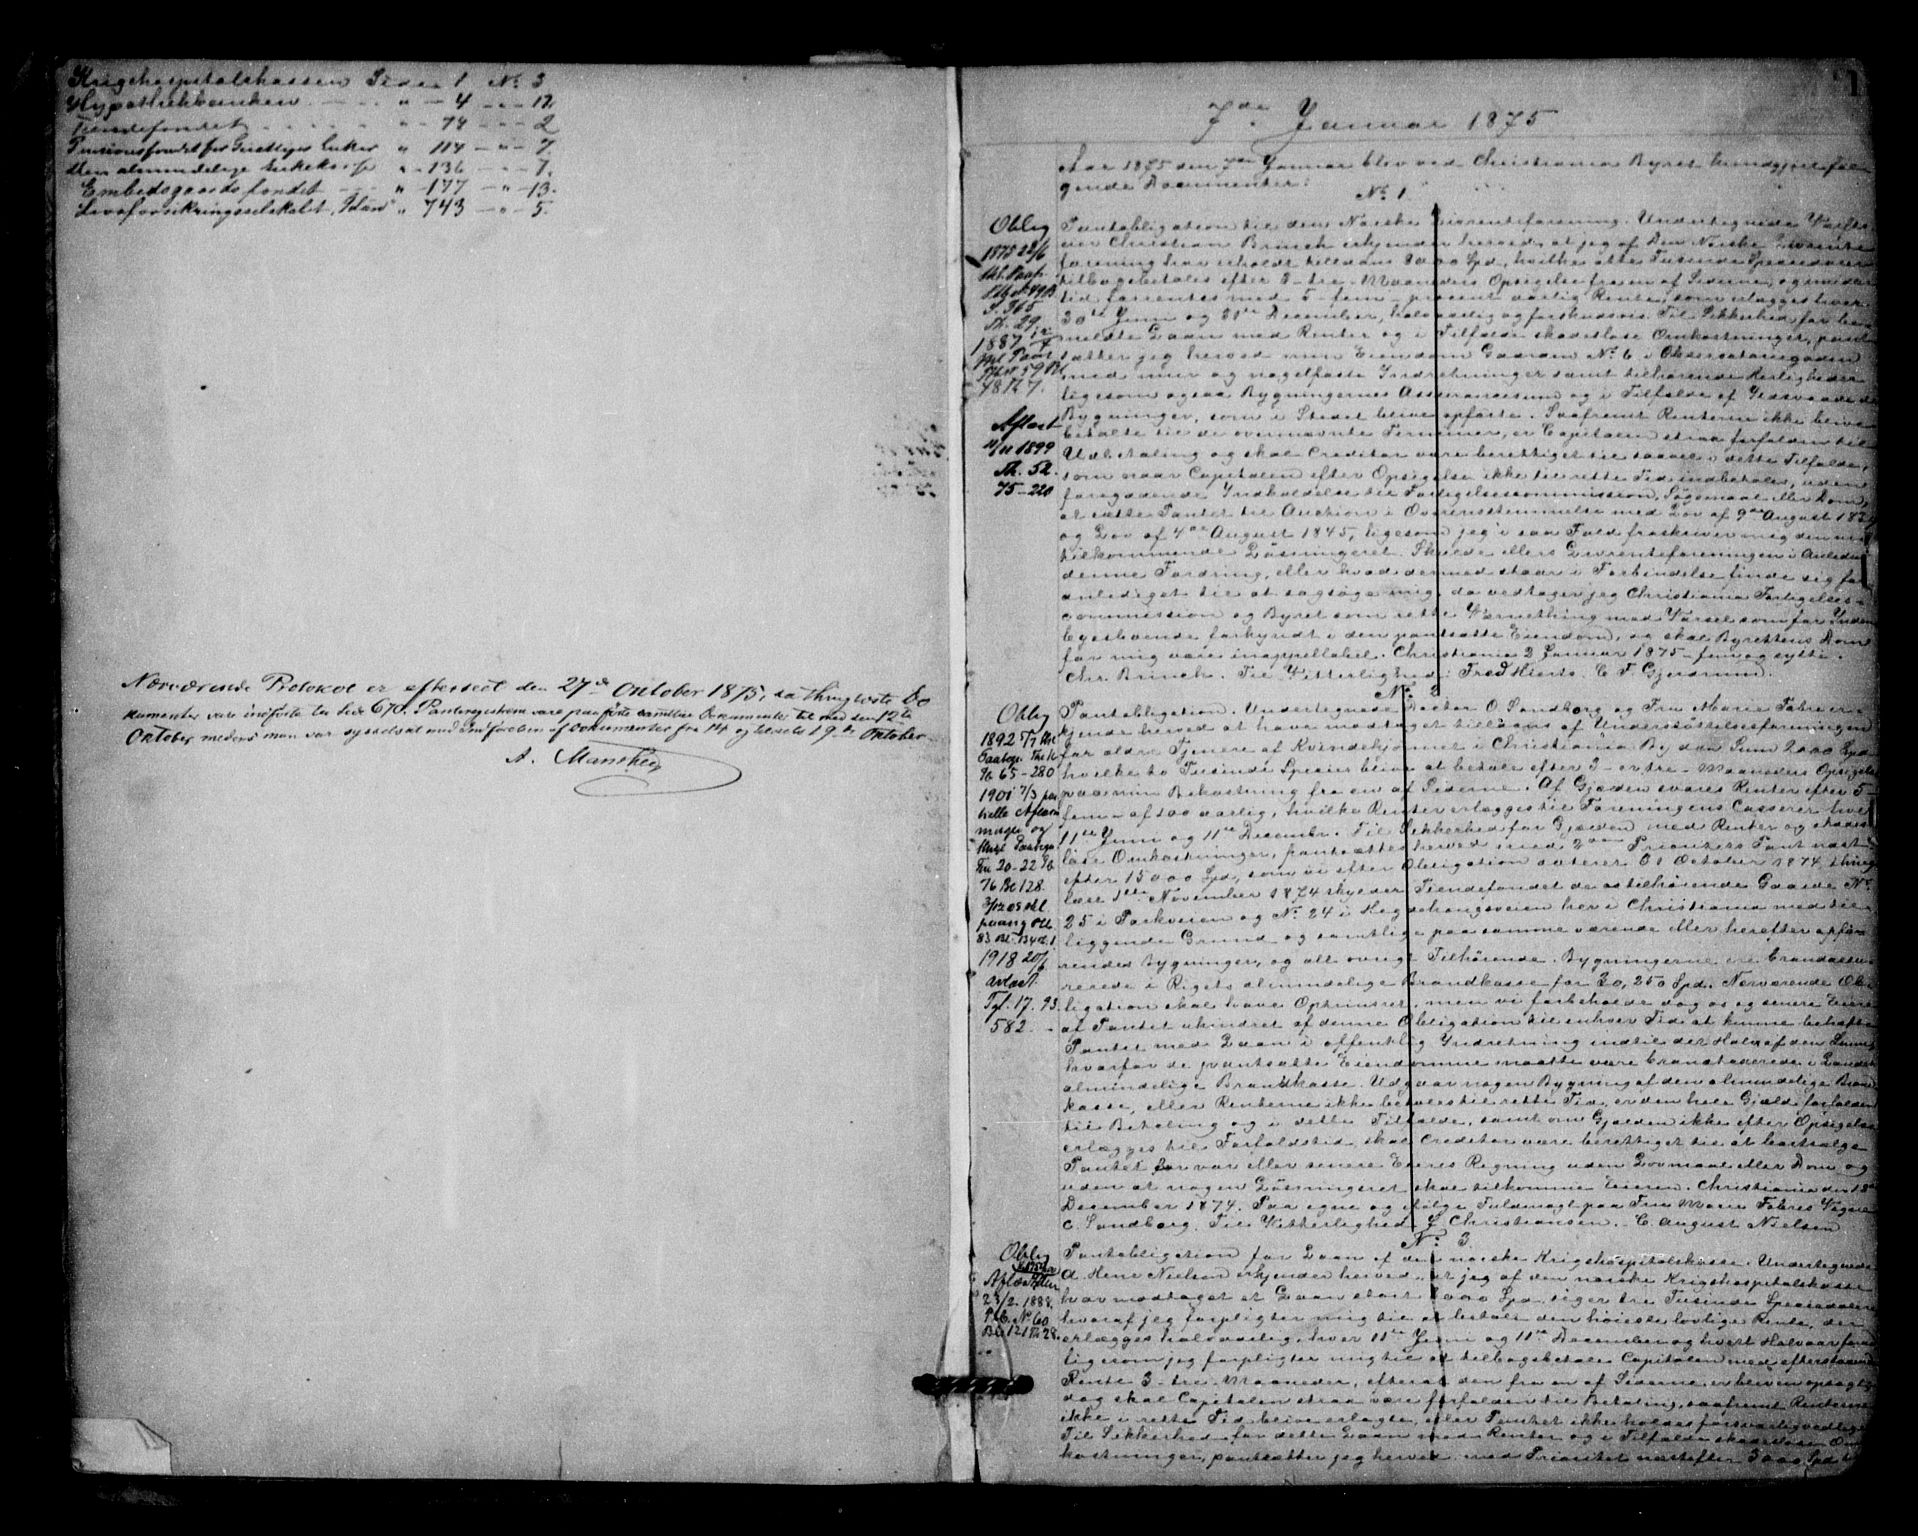 Krigshospitalskassen Side 1 No 3
Hypothekbanken - - - " - 4 - " - 12.
Tiendefondet - - - - - " - 74 - " - 2
Pensionsfondet for Geistliges Enker " 114 - " - 7.
Den almindelige Enkekasse " - 136 - " - 7.
Embedsgaardsfondet - - - " - 177 - " - 13.
Livsforsikringsselskabet, Idun " 743 - " - 5.
Nærværende Protokol er efterseet den 27de Oktober 1875, da thinglæste Do
kumenter vare indførte til Side 670. Panteregisterne vare paaførte samtlige Dokumenter til med den 12te
Oktober, medens man var sysselsat med Indførelsen af Dokumenter fra 14 og til 19de Oktober.
A. Manthey
1
7de Januar 1875
Aar 1875 den 7de Januar blev ved Christiania Byret kundgjort føl
gende Documenter:
No 1.
Pantobligation til den Norske Livrenteforening. Undertegnede
Christian Brinch erkjender herved, at jeg af Den Norske Livrente
forening har erholdt tillaans 8000 Spd, hvilke otte Tusinde Speciedaler
tilbagebetales efter 3 - tre - Maaneders Opsigelse fra en af Siderne, og imidler
tid forrentes med 5 - fem - procent aarlig Rente, som erlægges hver
30te Juni og 31te December, halvaarlig og forskudsvis. Til Sikkerhed for be
meldte Laan med Renter og i Tilfælde skadesløse Omkostninger, pant
sætter jeg herved min Eiendom Gaarden No 6 i Observatoriegaden
med muur og nagelfaste Indretninger samt tilhørende Herligheder
ligesom ogsaa Bygningernes Assurancesum og i Tilfælde af Ildsvaade de
Bygninger, som i Stedet blive opførte. Saafremt Renterne ikke blive
betalte til de ovennævnte Terminer, er Capitalen strax forfalden til
Udbetaling og skal Creditor være berettiget til saavel i dette Tilfælde,
som naar Capitalen efter Opsigelse ikke til rette Tid indbetales, uden
foregaaende Indkaldelse til Forligelsescommission, Søgsmaal eller Dom,
at sætte Pantet til Auction i Overensstemmelse med Lov af 9de August 1839
og Lov af 4de August 1845, ligesom jeg i saa Fald fraskriver mig den mig
tilkommende Løsningsret. Skulde ellers Livrenteforeningen i Anledn
denne Fordring, eller hvad dermed staar i Forbindelse finde sig for
anlediget til at sagsøge mig, da vedtager jeg Christiania Forligelses-
commission og Byret som rette Værnething med Varsel som for Inden
byesboende forkyndt i den pantsatte Eiendom, og skal Byrettens Dom
for mig være inappellabel. Christiania 2 Januar 1875 - fem og sytti.
Chr. Brinch. Til Vitterlighed: Fred Hiorth. C. F. Gjerdrum.
Oblig
1875 22/6
S. 365
Th. 29.
1887
48 No 7.
Aflæst
11/11 1899
Th. 52.
75 - 220
No 2
Pantobligation. Undertegnede Doctor O. Sandberg og Fru Marie Fabre er-
kjende herved at have modtaget tillaans af Understøttelsesforeningen
for ældre Tjenere af Kvindekjønnet i Christiania By den Sum 2000 Spd
hvilke to Tusinde Specier blive at betale efter 3 - er tre - Maaneders Opsigelse
paa min Bekostning fra en af Siderne. Af Gjælden svares Renter efter 5 -
fem - af 100 aarlig, hvilke Renter erlægges til Foreningens Casserer hver
11te Juni og 11te December. Til Sikkerhed for Gjælden med Renter og skades
løse Omkostninger, pantsættes herved med 2den Prioritets Pant næst
efter 15000 Spd, som vi efter Obligation dateret 31 October 1874 thing
læst 1ste November 1874 skylder Tiendefondet de os tilhørende Gaarde No
25 i Parkveien og No 24 i Hegdehaugsveien her i Christiania med til-
liggende Grund og samtlige paa samme værende eller herefter opfø-
rendes Bygninger, og alt øvrigt Tilhørende. Bygningerne ere brandassu-
rerede i Rigets almindelige Brandkasse for 30,250 Spd. Nærværende Ob-
ligation skal have Oprinsret, men vi forbeholde dog os og senere Eiere
af Pantet uhindret af denne Obligation til enhver Tid at kunne behæfte
Pantet med Laan i offentlig Indretning indtil det Halve af den Sum,
hvorfor de pantsatte Eiendomme maatte være brandtaxerede i Landets
almindelige Brandkasse. Udgaar nogen Bygning af den almindelige Brand
kasse, eller Renterne ikke betales til rette Tid, er den hele Gjæld forfalden
til Betaling og i dette Tilfælde, samt om Gjælden ikke efter Opsigelse
erlægges til Forfaldstid, skal Creditor være berettiget til at bortsælge
Pantet for vor eller senere Eieres Regning uden Lovmaal eller Dom og
uden at nogen Løsningsret skal tilkomme Eieren. Christiania den 18de
December 1874. Paa egne og ifølge Fuldmagt paa Fru Marie Fabres Vegne
O. Sandberg. Til Vitterlighed: J. Christiansen. C. August Nielsen
Oblig
1892 5/7
76 65 - 280
1901 7/3
76 Bl 128.
1918 20/6
avlæst.
Tgl. 17. 93.
582.
No 3
Pantobligation for Laan af den norske Krigshospitalskasse. Undertegnede
A. Henr Nielsen erkjender herved, at jeg af den norske Krigshospitalskasse
har modtaget et Laan stort 3000 Spd, siger tre Tusinde Speciedaler
hvoraf jeg forpligter mig til at betale den høieste lovlige Rente, der
erlægges halvaarlig, hver 11te Juni og 11te December og hvert Halvaar forud
ligesom jeg forpligter mig til at tilbagebetale Capitalen med efterstaaende
Rente 3 - tre - Maaneder, efterat den fra en af Siderne er bleven opsagt,
dog skal Capitalen strax være forfalden til Betaling, saafremt Renterne
ikke i rette Tid blive erlagte, eller Pantet ikke holdes forsvarlig vedlige.
Til Sikkerhed for dette Laan med Renter og i Tilfælde skadesløse Om
kostninger, pantsætter jeg herved med Prioritet næst efter 3000 Spd
Oblig
23/2 1888.
Ptb. No 60
Bl. 121 No 28.